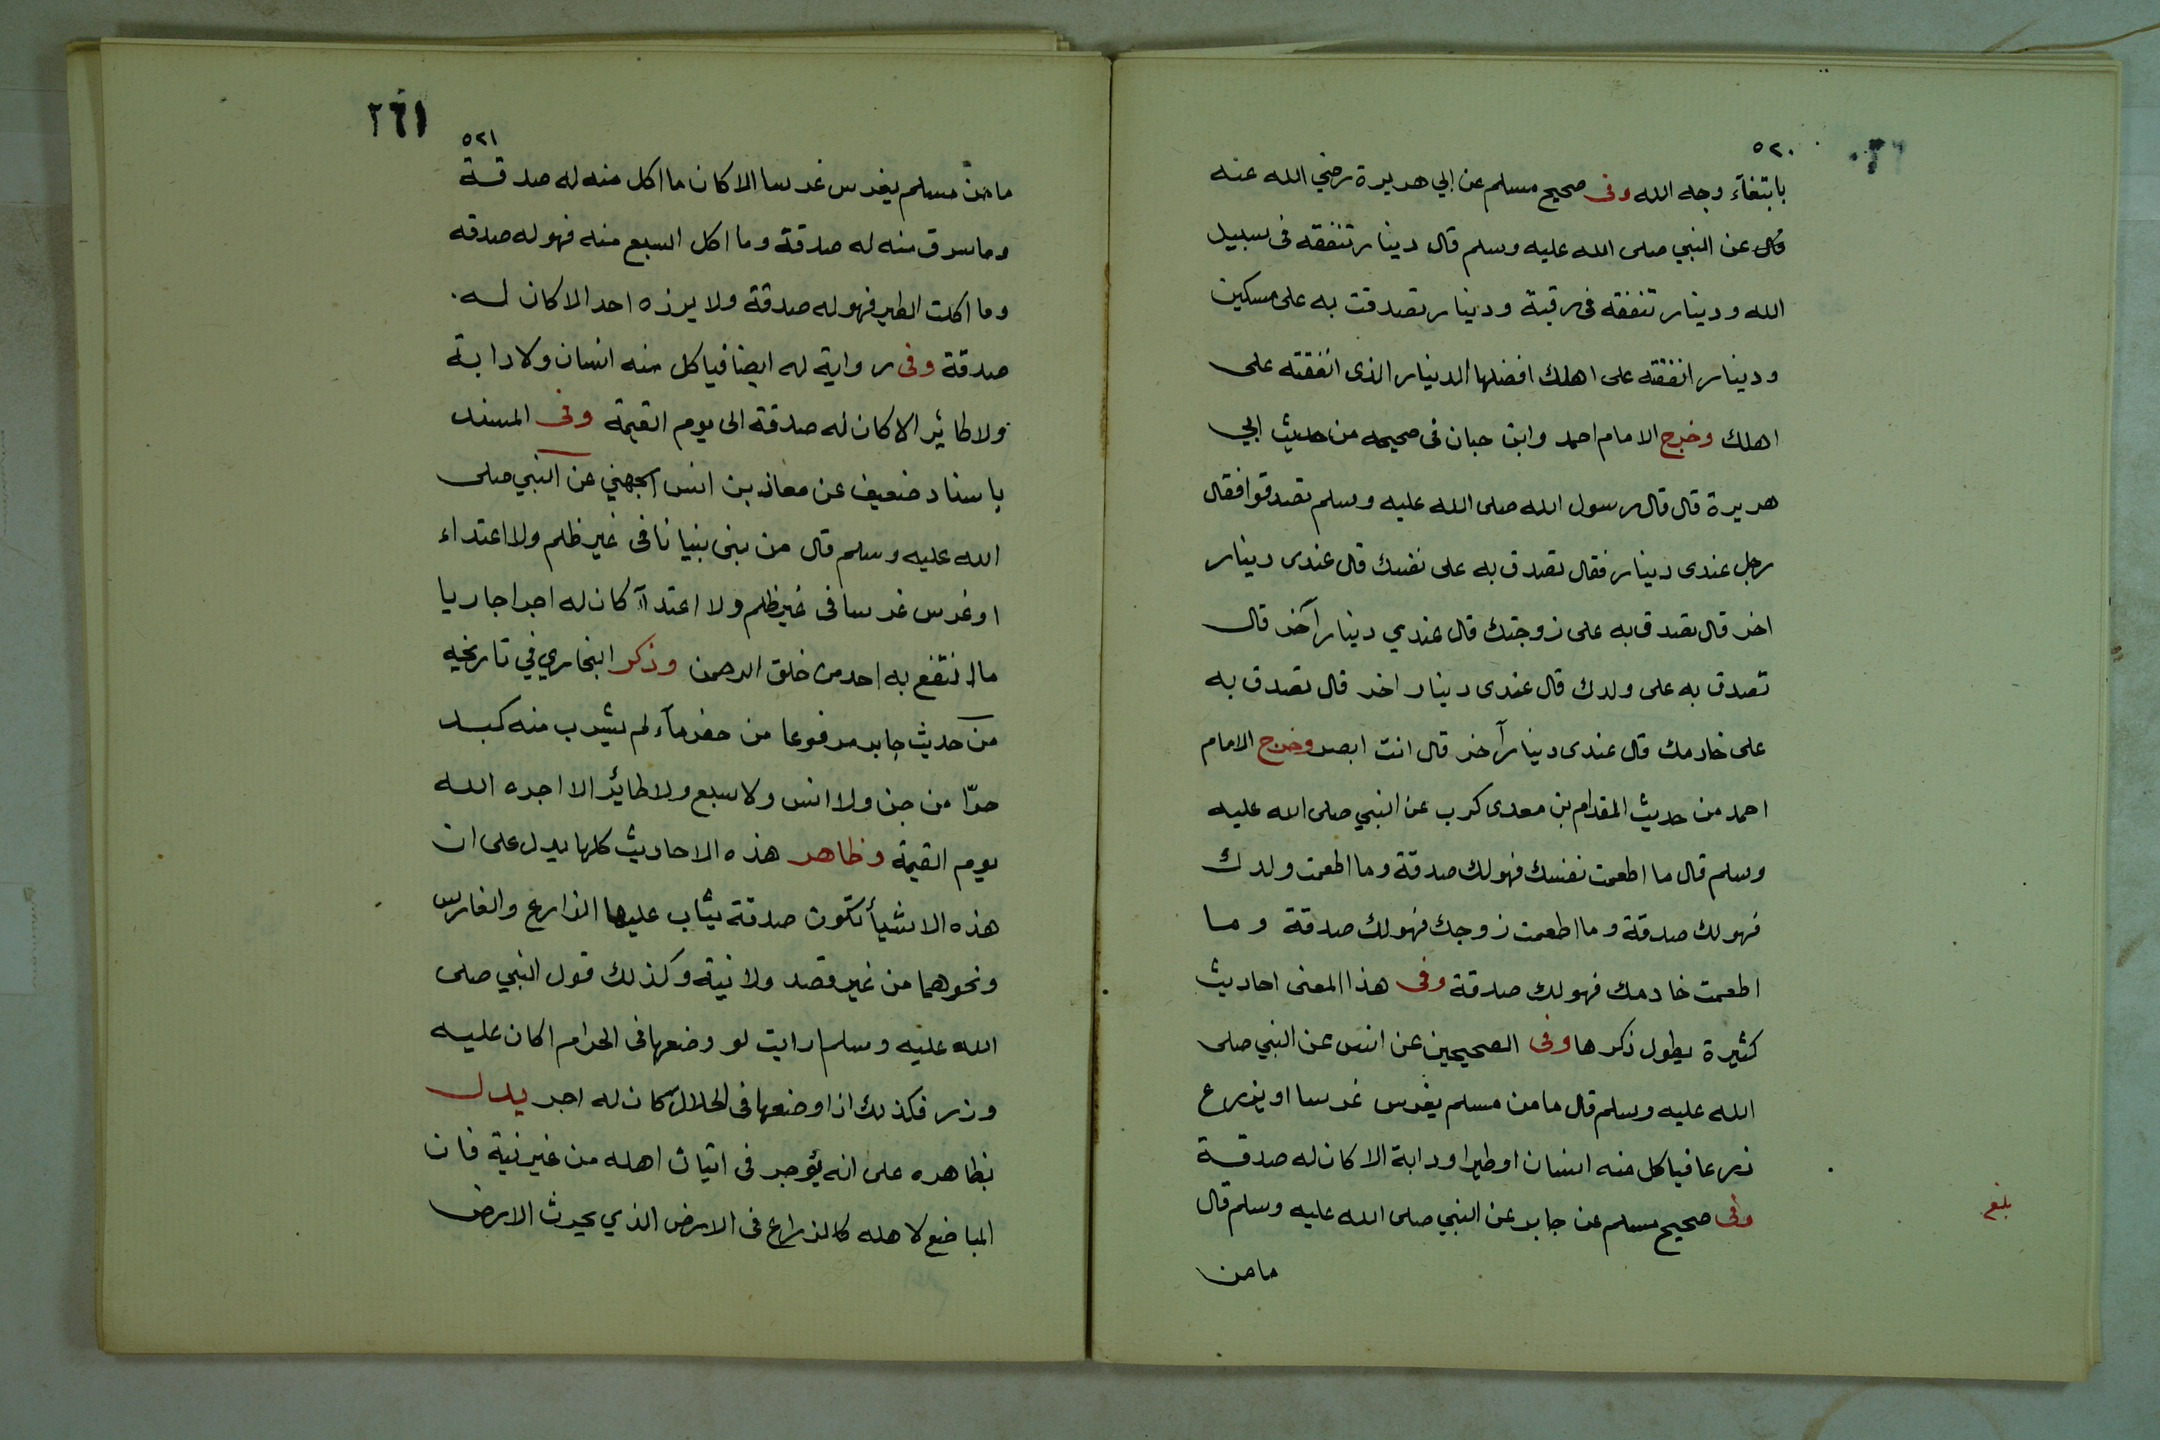 ٥٢٠
بابتغآء وجه الله وفى صحيح مسلم عن ابي هريرة رضي الله عنه
قال عن النبي صلى الله عليه وسلم قال دينار تنفقه فى سبيل
الله ودينار تنفقه فى رقبة ودينار تصدقت به على مسكين
ودينار انفقته على اهلك افضلها الدنيار الذى انفقته على
اهلك وخرج الامام احمد وابن حبان فى صحيحه من حديث ابي
هريرة قال قال رسول الله صلى الله عليه وسلم تصدقوا فقال
رجل عندى دينار فقال تصدق به على نفسك قال عندى دينار
اخر قال تصدق به على زوجتك قال عندي دينار آخر قال
تصدق به على ولدك قال عندى دينار اخر قال تصدق به
على خادمك قال عندى دينار آخر قال انت ابصر وخرج الامام
احمد من حديث المقدام بن معدى كرب عن النبي صلى الله عليه
وسلم قال ما اطعمت نفسك فهو لك صدقة وما اطعمت ولدك
فهو لك صدقة وما اطعمت زوجك فهو لك صدقة وما
اطعمت خادمك فهو لك صدقة وفى هذا المعنى احاديث
كثيرة يطول ذكرها وفى الصحيحين عن انس عن النبي صلى
الله عليه وسلم قال ما من مسلم يغرس غرسا او يزرع
زرعا فياكل منه انسان او طيرا ودابة الا كان له صدقة
وفى صحيح مسلم عن جابر عن النبي صلى الله عليه وسلم قال
بلغ
ما من
٢٦١
٥٢١
ما من مسلم يغرس غرسا الا كان ما اكل منه له صدقة
وما سرق منه له صدقة وما اكل السبع منه فهو له صدقه
وما اكلت الطير فهو له صدقة ولا يرزه احد الا كان له
صدقة وفى رواية له ايضا فياكل منه انسان ولا دابة
ولا طائر الا كان له صدقة الى يوم القيمة وفى المسند
باسناد ضعيف عن معاذ بن انس الجهني عن النبي صلى
الله عليه وسلم قال من بنى بنيانا فى غير ظلم ولا اعتداء
او غرس غرسا فى غير ظلم ولا اعتدآء كان له اجرا جاريا
ما انتفع به احد من خلق الرحمن وذكر البخاري في تاريخه
من حديث جابر مرفوعا من حفر مآء لم يشرب منه كبد
حرّا من جن ولا انس ولا سبع ولا طائر الا اجره الله
يوم القيمة وظاهر هذه الاحاديث كلها يدل على ان
هذه الاشيآ تكون صدقة يثاب عليها الزارع والغارس
ونحوهما من غير قصد ولا نية وكذلك قول النبي صلى
الله عليه وسلم ارايت لو وضعها فى الحرام اكان عليه
وزر فكذلك اذا وضعها فى الحلال كان له اجر يدل
بظاهره على انه يؤجر فى اتيان اهله من غير نية فان
المباضع لاهله كالزراع فى الارض الذي يحرث الارض